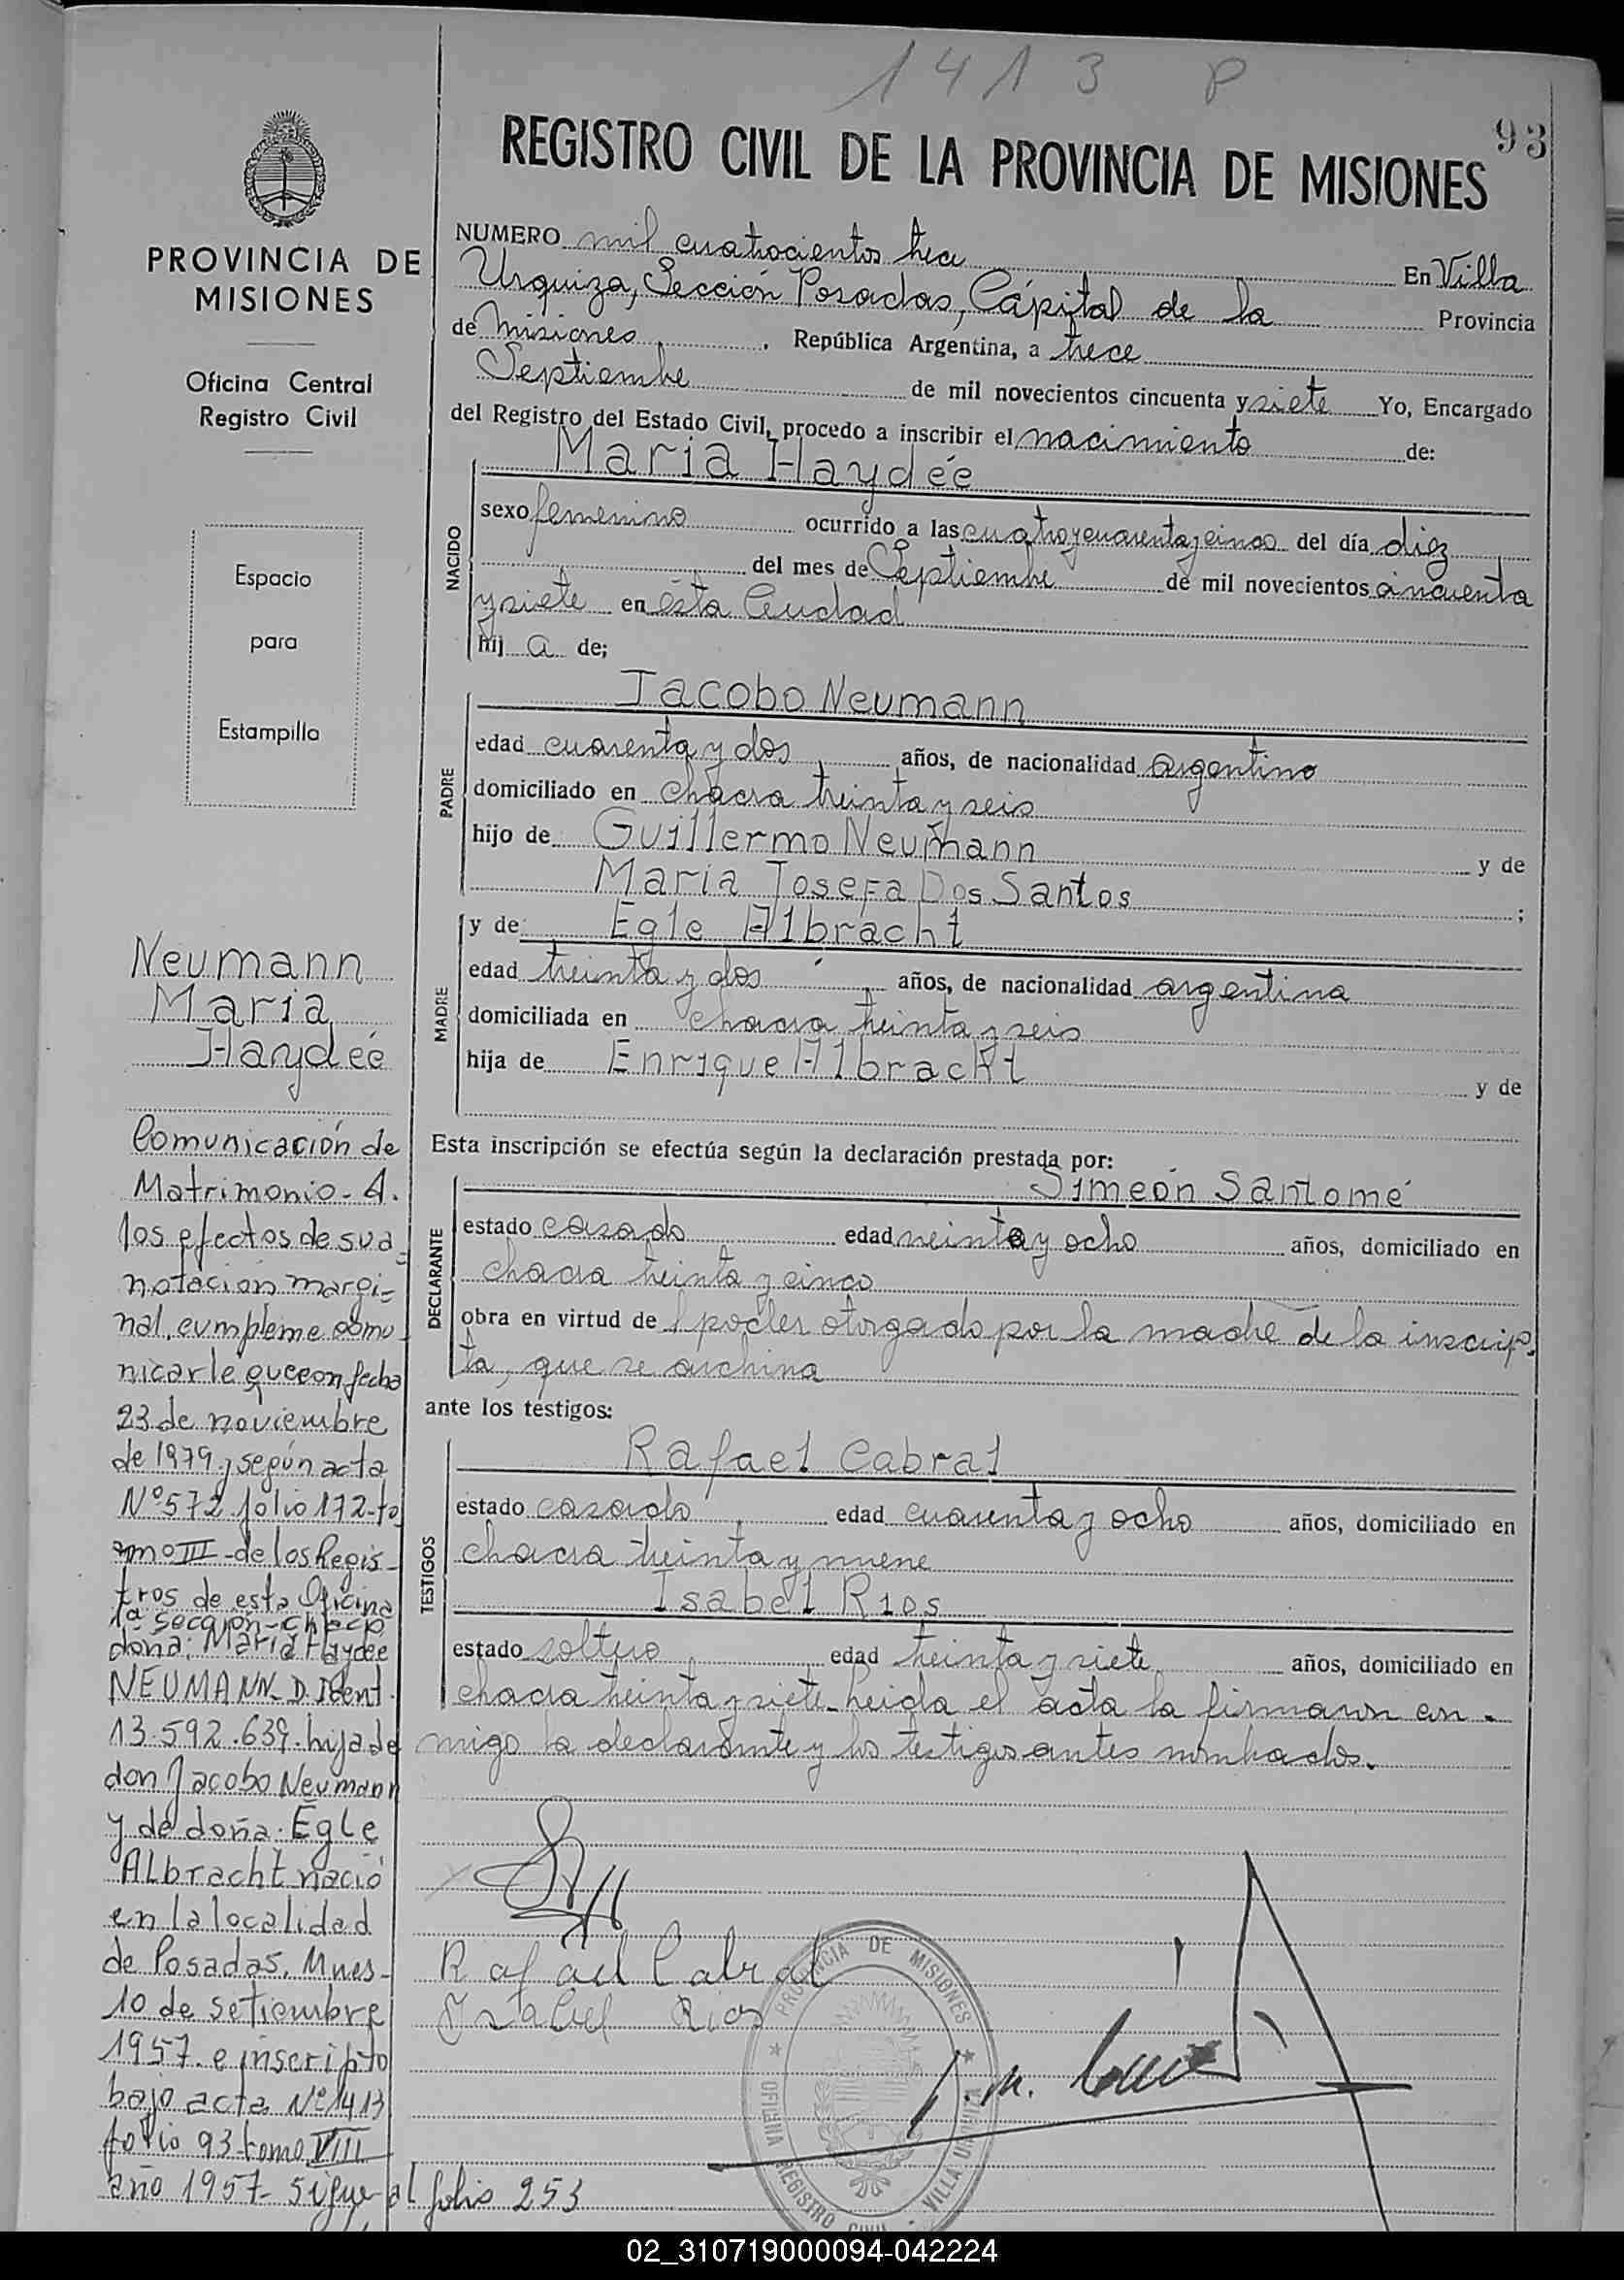 1413 P
93
REGISTRO CIVIL DE LA PROVINCIA DE MISIONES
PROVINCIA DE
MISIONES
Oficina Central
Registro Civil
Espacio
para
Estampilla
NUMERO mil cuatrocientos trece En Villa
Urquiza, Sección Posadas, Cápital de la Provincia
de Misiones, República Argentina, a trece
Septiembre de mil novecientos cincuenta y siete Yo, Encargado
del Registro del Estado Civil, procedo a inscribir el nacimiento de:
NACIDO
Maria Haydée
sexo femenino ocurrido a las cuatro y cuarenta y cinco del día diez
del mes de Septiembre de mil novecientos cincuenta
y siete en ésta Ciudad
hij a de;
PADRE
Jacobo Neumann
edad cuarenta y dos años, de nacionalidad argentino
domiciliado en chacra treinta y seis
hijo de Guillermo Neumann y de
Maria Josefa Dos Santos ;
MADRE
y de Egle Albracht
edad treinta y dos años, de nacionalidad argentina
domiciliada en chacra treinta y seis
hija de Enrique Albracht y de
Esta inscripción se efectúa según la declaración prestada por:
DECLARANTE
Simeón Santomé
estado casado edad treinta y ocho años, domiciliado en
chacra treinta y cinco
obra en virtud de poder otorgado por la madre de la inscrip-
ta, que se archiva
ante los testigos:
TESTIGOS
Rafael Cabral
estado casado edad cuarenta y ocho años, domiciliado en
chacra treinta y nueve
Isabel Rios
estado soltero edad treinta y siete años, domiciliado en
chacra treinta y siete. Leida el acta la firmaron con-
migo la declarante y los testigos antes nombrados.
Rafael Cabral
Isabel Rios
PROVINCIA DE MISIONES
OFICINA REGISTRO CIVIL - VILLA URQUIZA
Neumann
Maria
Haydeé
Comunicación de
Matrimonio - A.
los efectos de su a-
notación margi-
nal, cumpleme comu-
nicarle que con fecha
23 de noviembre
de 1979 y según acta
Nº 572 folio 172 - to
omo III - de los Regis-
tros de esta Oficina
1ª sección - Chaco
doña: Maria Haydee
NEUMANN - D. Ident.
13.592.639. hija de
don Jacobo Neumann
y de doña. Egle
Albracht nació
en la localidad
de Posadas. Mnes-
10 de setiembre
1957. e inscripto
bajo acta Nº 1413
folio 93 tomo VIII
año 1957 - Sigue al folio 253
02_310719000094-042224